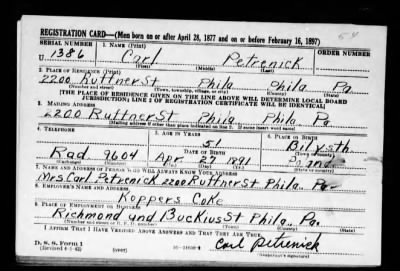 54
REGISTRATION CARD—(Men born on or after April 28, 1877 and on or before February 16, 1897)
SERIAL NUMBER 1. NAME (Print) ORDER NUMBER
U 1386 Carl Petrenick
(First) (Middle) (Last)
2. PLACE OF RESIDENCE (Print)
2200 Ruttner St Phila Phila Pa
(Number and street) (Town, township, village, or city) (County) (State)
[THE PLACE OF RESIDENCE GIVEN ON THE LINE ABOVE WILL DETERMINE LOCAL BOARD
JURISDICTION; LINE 2 OF REGISTRATION CERTIFICATE WILL BE IDENTICAL]
3. MAILING ADDRESS
2200 Ruttner St Phila Phila Pa
[Mailing address if other than place indicated on line 2. If same insert word same]
4. TELEPHONE 5. AGE IN YEARS 6. PLACE OF BIRTH
51
DATE OF BIRTH (Town or county)
Rad. 9604 Apr 27 1891
(Exchange) (Number) (Mo.) (Day) (Yr.) (State or country)
7. NAME AND ADDRESS OF PERSON WHO WILL ALWAYS KNOW YOUR ADDRESS
Mrs Carl Petrenick 2200 Ruttner St Phila. Pa.
8. EMPLOYER'S NAME AND ADDRESS
Koppers Coke
9. PLACE OF EMPLOYMENT OR BUSINESS
Richmond and Buckius St Phila., Pa.
(Number and street or R. F. D. number) (Town) (County) (State)
I AFFIRM THAT I HAVE VERIFIED ABOVE ANSWERS AND THAT THEY ARE TRUE.
D. S. S. Form 1 Carl Petrenick
(Revised 4-1-42) (over) (Registrant's signature)